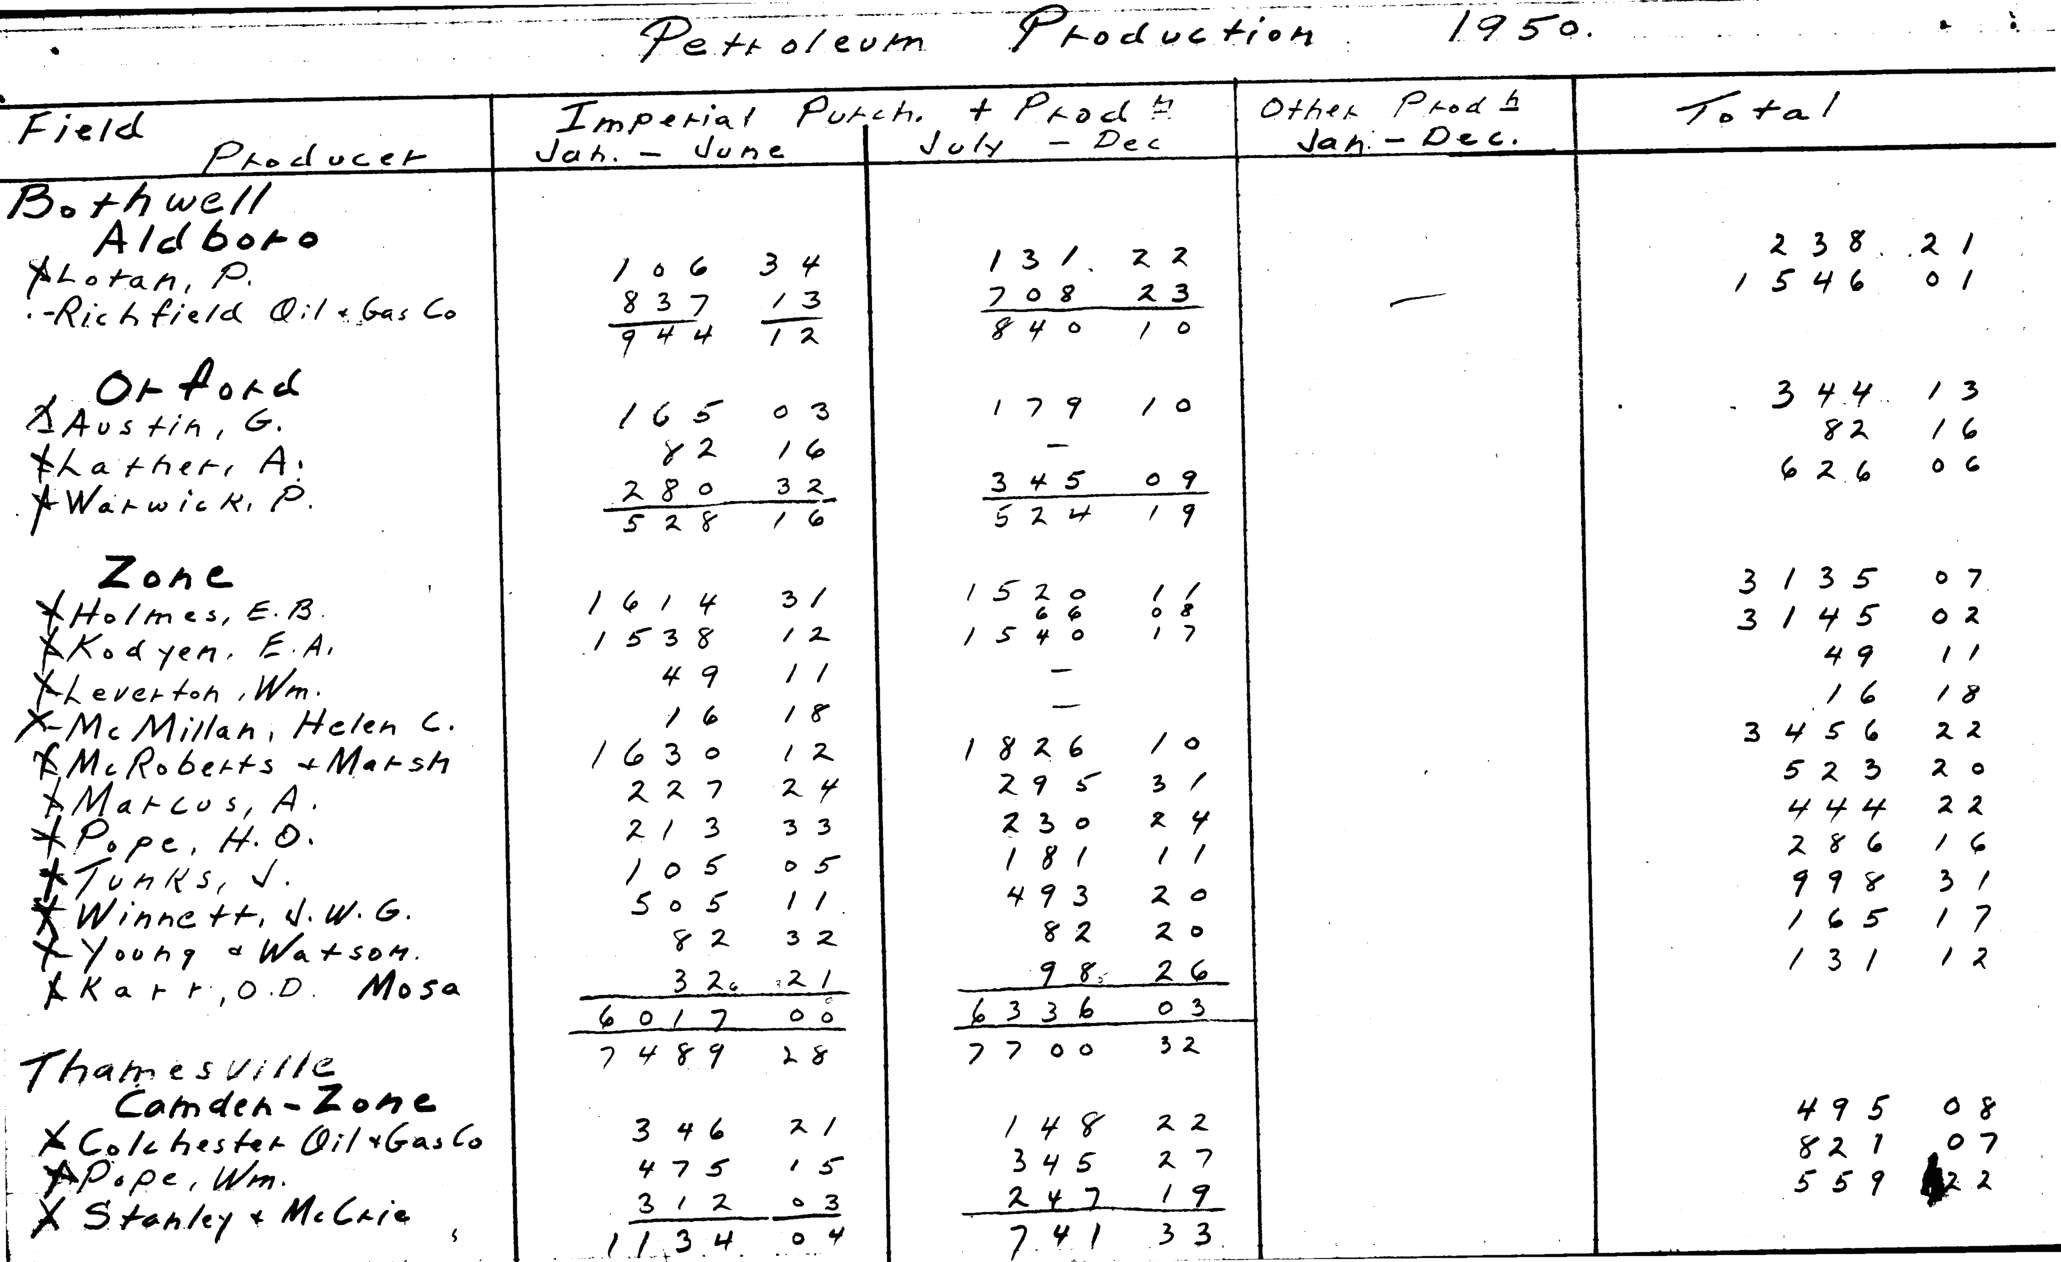 Petroleum Production 1950.
Field Producer Imperial Purch. + Prod n Jan. - June July - Dec Other Prod n Jan. - Dec. Total
Bothwell
Aldboro
X Lotan, P. 106 34 131 22 238 21
- Richfield Oil & Gas Co 837 13 708 23 — 1546 01
944 12 840 10
Orford
X Austin, G. 165 03 179 10 344 13
X Lather, A. 82 16 — 82 16
X Warwick, P. 280 32 345 09 626 06
528 16 524 19
Zone
X Holmes, E.B. 1614 31 1520 11 3135 07
66 08
X Kodyen, E.A. 1538 12 1540 17 3145 02
X Leverton, Wm. 49 11 — 49 11
X McMillan, Helen C. 16 18 — 16 18
X McRoberts + Marsh 1630 12 1826 10 3456 22
X Marcus, A. 227 24 295 31 523 20
X Pope, H.O. 213 33 230 24 444 22
X Tunks, J. 105 05 181 11 286 16
X Winnett, J.W.G. 505 11 493 20 998 31
X Young & Watson. 82 32 82 20 165 17
X Karr, O.D. Mosa 32 21 98 26 131 12
6017 00 6336 03
7489 28 7700 32
Thamesville
Camden-Zone
X Colchester Oil & Gas Co 346 21 148 22 495 08
X Pope, Wm. 475 15 345 27 821 07
X Stanley + McCrie 312 03 247 19 559 22
1134 04 741 33